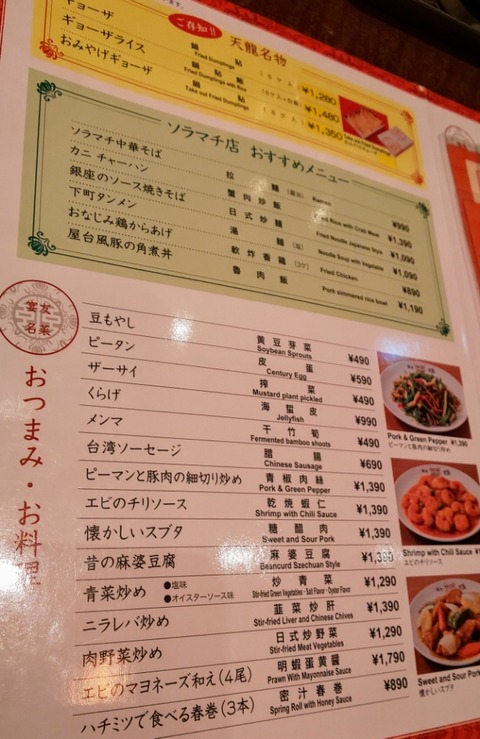 ご存知!! 天龍名物
ギョーザ 鍋貼 Fried Dumplings (8ヶ入) ¥1,280
ギョーザライス 鍋貼飯 Fried Dumplings with Rice ¥1,480
おみやげギョーザ 鍋貼 Take out Fried Dumplings (8ヶ入) ¥1,350
Take out Fried Dumplings
ソラマチ店 おすすめメニュー
ソラマチ中華そば 拉麺 Ramen ¥990
カニ チャーハン 蟹肉炒飯 Fried Rice with Crab Meat ¥1,390
銀座のソース焼きそば 日式炒麺 Fried Noodle Japanese Style ¥1,090
下町タンメン 湯麺 (塩) Noodle Soup with Vegetable ¥1,090
おなじみ鶏からあげ 軟炸香鶏 (3ケ) Fried Chicken ¥890
屋台風豚の角煮丼 魯肉飯 Pork simmered rice bowl ¥1,190
宴友名菜
おつまみ・お料理
豆もやし 黄豆芽菜 Soybean Sprouts ¥490
ピータン 皮蛋 Century Egg ¥590
ザーサイ 搾菜 Mustard plant pickled ¥490
くらげ 海蜇皮 Jellyfish ¥990
メンマ 干竹筍 Fermented bamboo shoots ¥490
台湾ソーセージ 腊腸 Chinese Sausage ¥690
ピーマンと豚肉の細切り炒め 青椒肉絲 Pork & Green Pepper ¥1,390
エビのチリソース 乾焼蝦仁 Shrimp with Chili Sauce ¥1,390
懐かしいスブタ 糖醋肉 Sweet and Sour Pork ¥1,390
昔の麻婆豆腐 麻婆豆腐 Beancurd Szechuan Style ¥1,390
青菜炒め ●塩味 ●オイスターソース味 炒青菜 Stir-fried Green Vegetables・Salt Flavor・Oyster Flavor ¥1,290
ニラレバ炒め 韮菜炒肝 Stir-fried Liver and Chinese Chives ¥1,390
肉野菜炒め 日式炒野菜 Stir-fried Meat Vegetables ¥1,290
エビのマヨネーズ和え(4尾) 明蝦蛋黄醤 Prawn With Mayonnaise Sauce ¥1,790
ハチミツで食べる春巻(3本) 密汁春巻 Spring Roll with Honey Sauce ¥890
Pork & Green Pepper ¥1,390
ピーマンと豚肉の細切り炒め
Shrimp with Chili Sauce
エビのチリソース
Sweet and Sour Pork
懐かしいスブタ